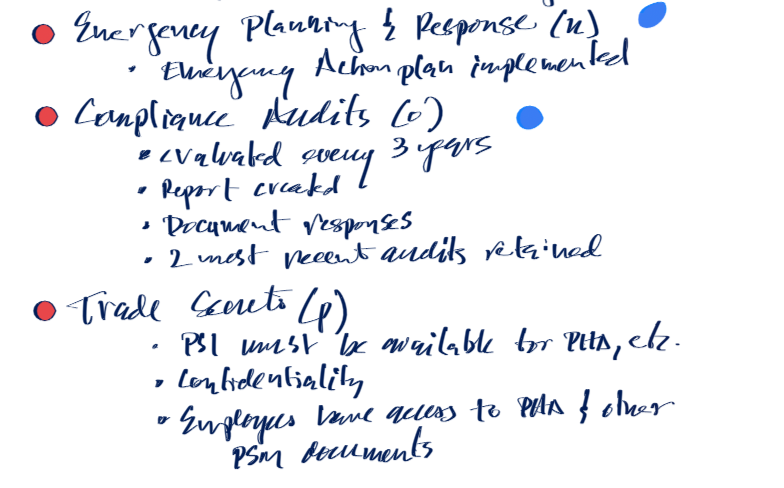 Emergency Planning & Response (n)
• Emergency Action plan implemented
Compliance Audits (o)
• evaluated every 3 years
• Report created
• Document responses
• 2 most recent audits retained
Trade Secrets (p)
• PSI must be available for PHA, etc.
• Confidentiality
• Employees have access to PHA & other
PSM documents